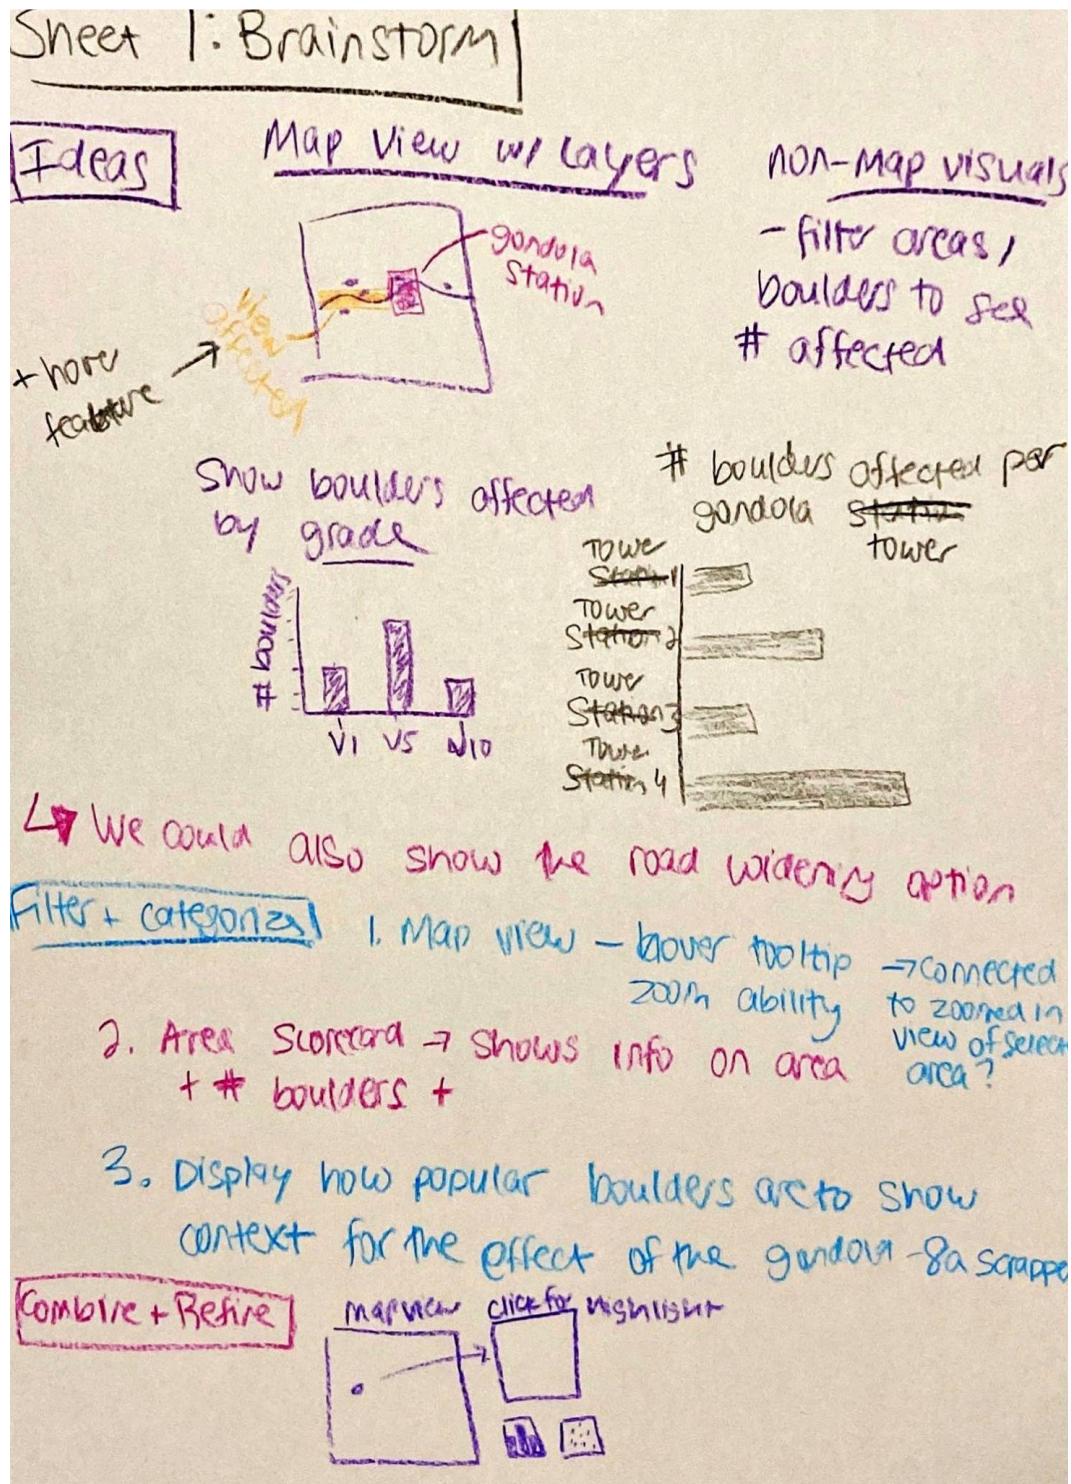 Sheet 1: Brainstorm
Ideas
Map View w/ Layers
non-map visuals
- filter areas,
boulders to see
# affected
gondola
station
view
affected
+ hover
feature
Show boulders affected
by grade
# boulders
V1 V5 V10
# boulders affected per
gondola station
tower
Tower
Station 1
Tower
Station 2
Tower
Station 3
Tower
Station 4
↳ We could also show the road widening option
Filter + categorize
1. Map view - hover tooltip
zoom ability
→ connected
to zoomed in
view of select
area?
2. Area Scorecard → shows info on area
+ # boulders +
3. Display how popular boulders are to show
context for the effect of the gondola - 8a scrappe
Combine + Refine
map view
click for highlight